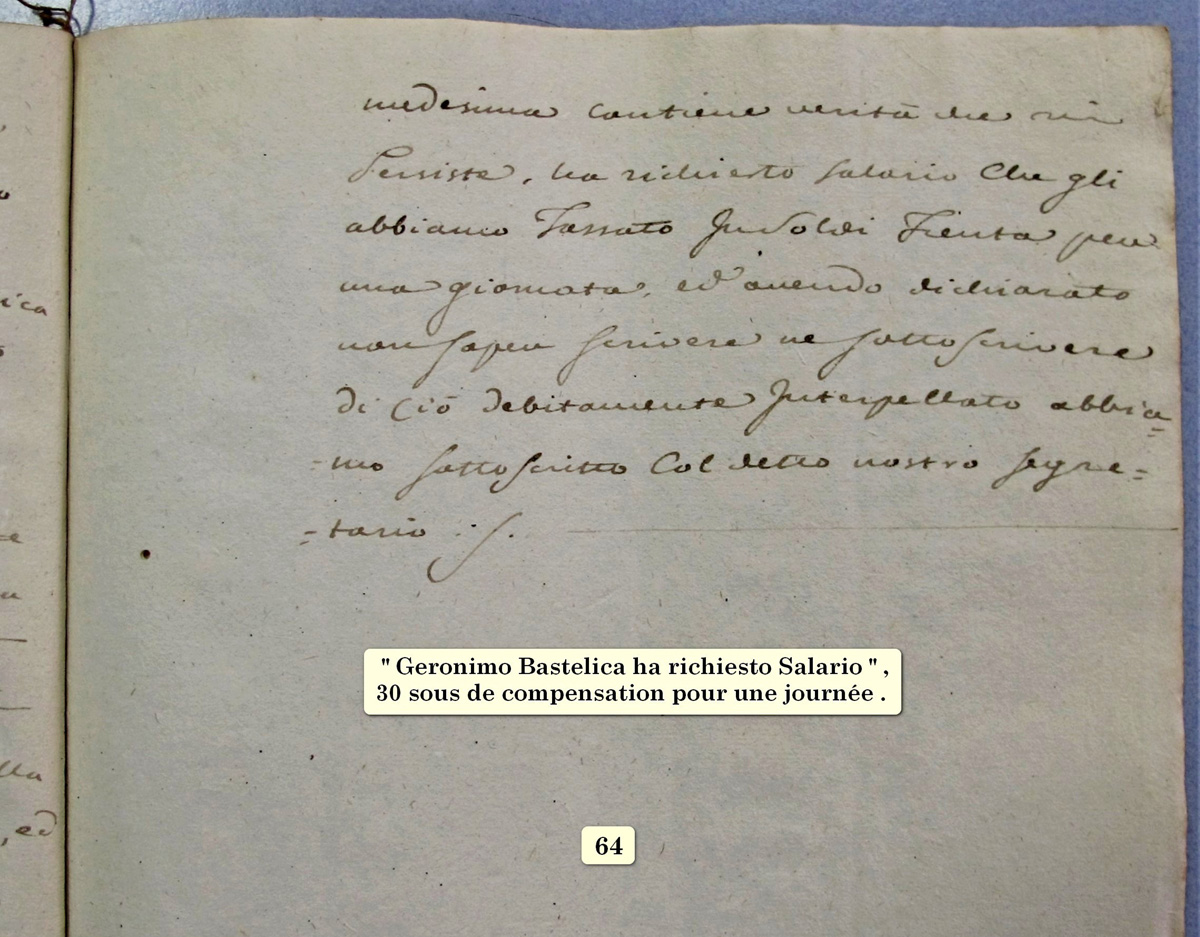 medesima contiene verità che vi
Persiste, ha richiesto salario Che gli
abbiamo Tassato In Soldi Trenta per
una giornata, ed avendo dichiarato
non saper scrivere ne sottoscrivere
di Ciò debitamente Interpellato abbia=
=mo sottoscritto Col detto nostro segre=
=tario
" Geronimo Bastelica ha richiesto Salario " ,
30 sous de compensation pour une journée .
64
ica
lla
, ed